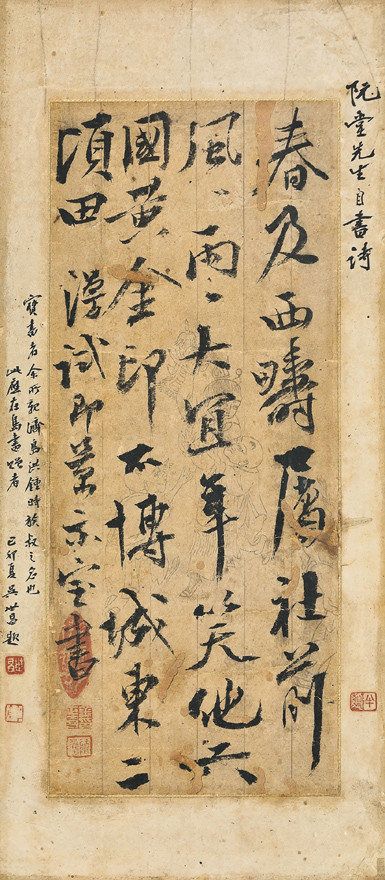 阮堂先生自書詩
春及西疇屬社前
風〻雨〻大宜年笑他六
國黃金印不博城東二
頃田 漫試即景示宝書
寶書者余所親濟島洪鍾時族叔之名也
此應在島書贈者
己卯夏吳世昌題